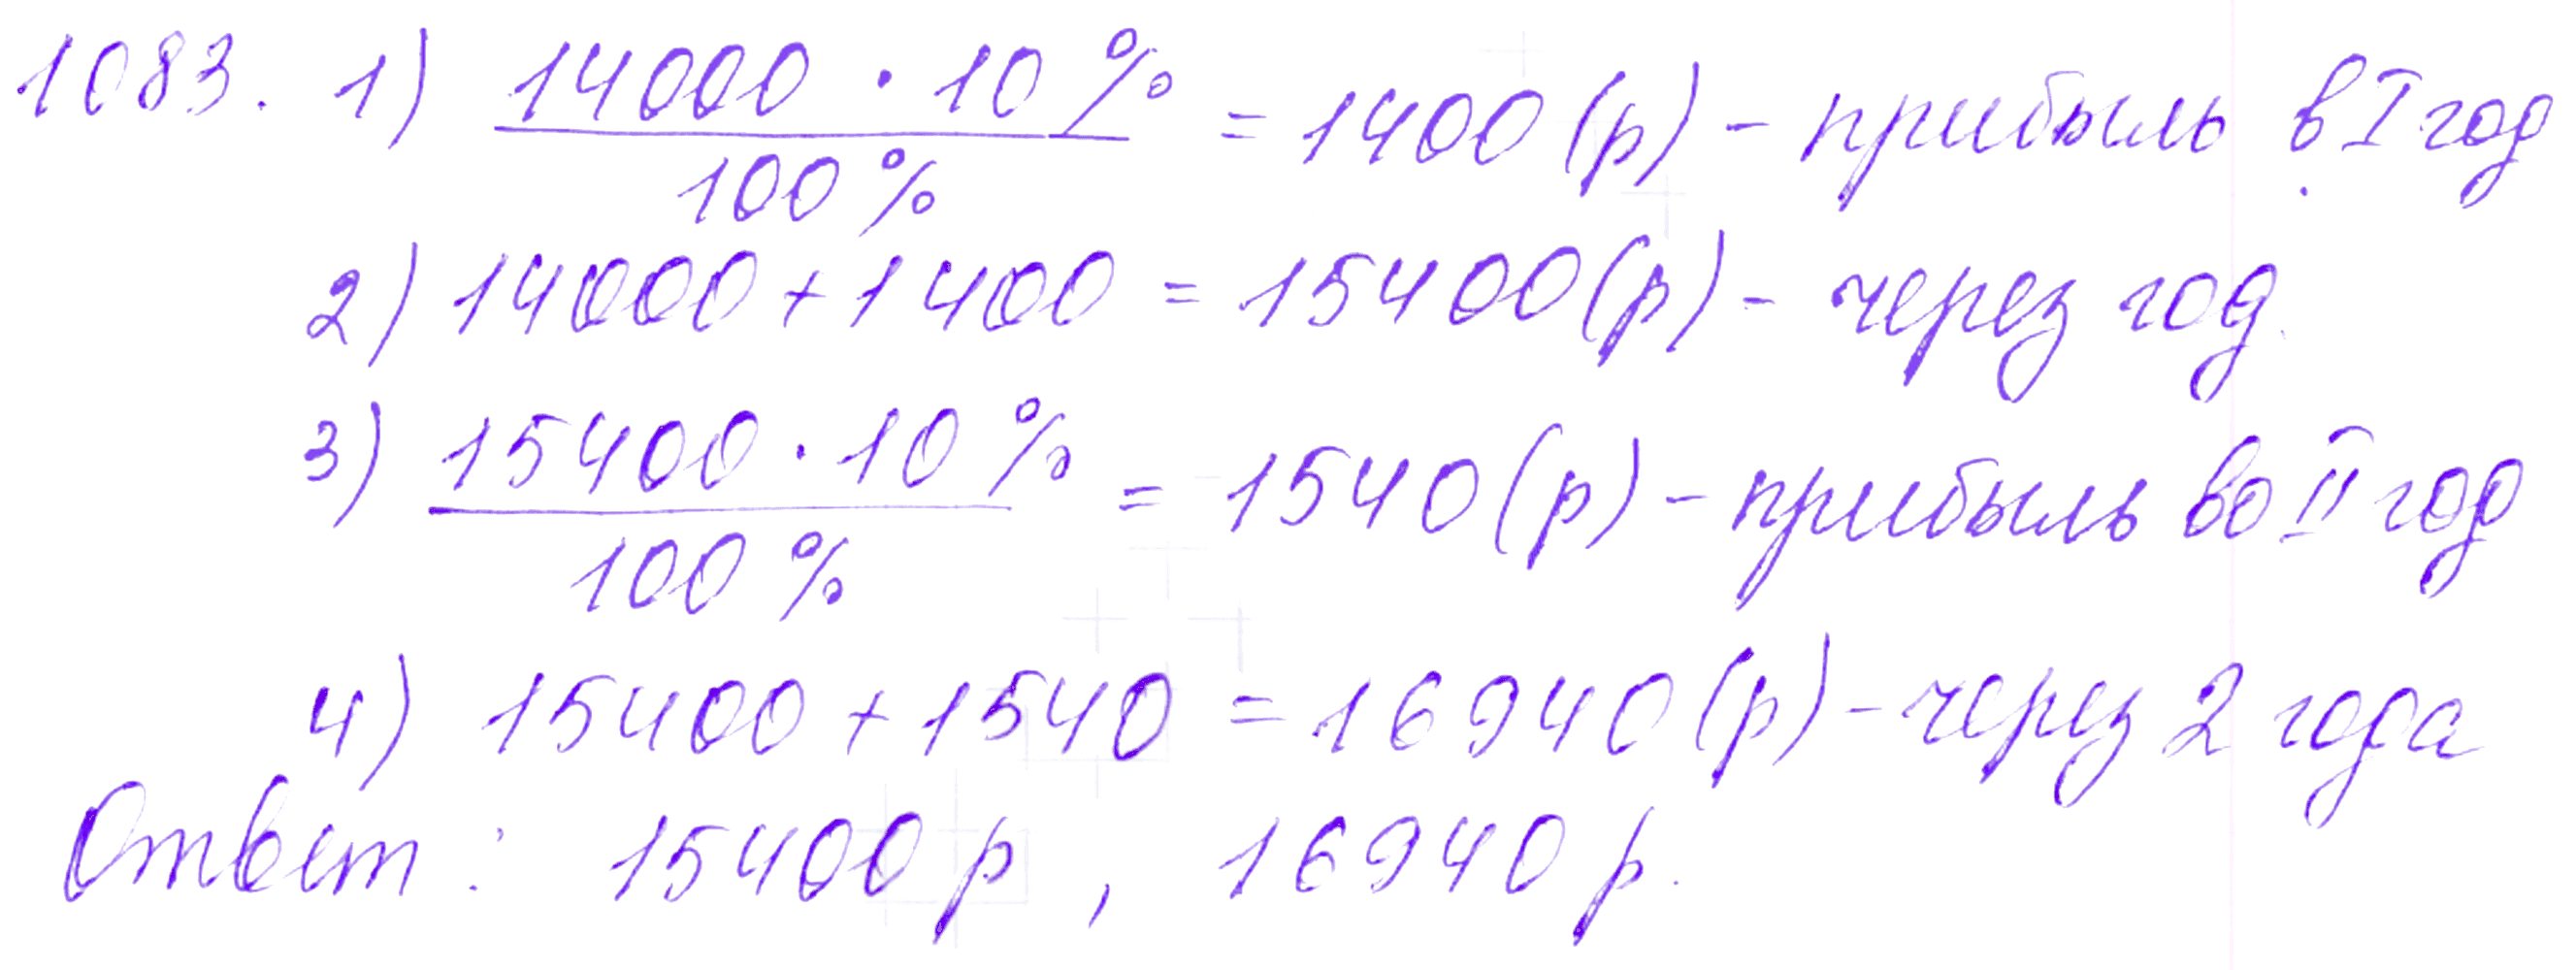 1083. 1) 14000 · 10% / 100% = 1400 (р) - прибыль в I год
2) 14000 + 1400 = 15400 (р) - через год.
3) 15400 · 10% / 100% = 1540 (р) - прибыль во II год
4) 15400 + 1540 = 16940 (р) - через 2 года
Ответ: 15400 р, 16940 р.